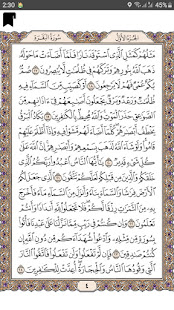 2:30
الجزء الأول سورة البقرة
مَثَلُهُمْ كَمَثَلِ الَّذِي اسْتَوْقَدَ نَارًا فَلَمَّا أَضَاءَتْ مَا حَوْلَهُ
ذَهَبَ اللَّهُ بِنُورِهِمْ وَتَرَكَهُمْ فِي ظُلُمَاتٍ لَا يُبْصِرُونَ ١٧ صُمٌّ
بُكْمٌ عُمْيٌ فَهُمْ لَا يَرْجِعُونَ ١٨ أَوْ كَصَيِّبٍ مِنَ السَّمَاءِ فِيهِ
ظُلُمَاتٌ وَرَعْدٌ وَبَرْقٌ يَجْعَلُونَ أَصَابِعَهُمْ فِي آذَانِهِمْ مِنَ
الصَّوَاعِقِ حَذَرَ الْمَوْتِ وَاللَّهُ مُحِيطٌ بِالْكَافِرِينَ ١٩ يَكَادُ الْبَرْقُ
يَخْطَفُ أَبْصَارَهُمْ كُلَّمَا أَضَاءَ لَهُمْ مَشَوْا فِيهِ وَإِذَا أَظْلَمَ عَلَيْهِمْ
قَامُوا وَلَوْ شَاءَ اللَّهُ لَذَهَبَ بِسَمْعِهِمْ وَأَبْصَارِهِمْ إِنَّ اللَّهَ عَلَى
كُلِّ شَيْءٍ قَدِيرٌ ٢٠ يَا أَيُّهَا النَّاسُ اعْبُدُوا رَبَّكُمُ الَّذِي
خَلَقَكُمْ وَالَّذِينَ مِنْ قَبْلِكُمْ لَعَلَّكُمْ تَتَّقُونَ ٢١ الَّذِي جَعَلَ
لَكُمُ الْأَرْضَ فِرَاشًا وَالسَّمَاءَ بِنَاءً وَأَنْزَلَ مِنَ السَّمَاءِ مَاءً فَأَخْرَجَ
بِهِ مِنَ الثَّمَرَاتِ رِزْقًا لَكُمْ فَلَا تَجْعَلُوا لِلَّهِ أَنْدَادًا وَأَنْتُمْ
تَعْلَمُونَ ٢٢ وَإِنْ كُنْتُمْ فِي رَيْبٍ مِمَّا نَزَّلْنَا عَلَى عَبْدِنَا فَأْتُوا
بِسُورَةٍ مِنْ مِثْلِهِ وَادْعُوا شُهَدَاءَكُمْ مِنْ دُونِ اللَّهِ إِنْ
كُنْتُمْ صَادِقِينَ ٢٣ فَإِنْ لَمْ تَفْعَلُوا وَلَنْ تَفْعَلُوا فَاتَّقُوا النَّارَ
الَّتِي وَقُودُهَا النَّاسُ وَالْحِجَارَةُ أُعِدَّتْ لِلْكَافِرِينَ ٢٤
٤